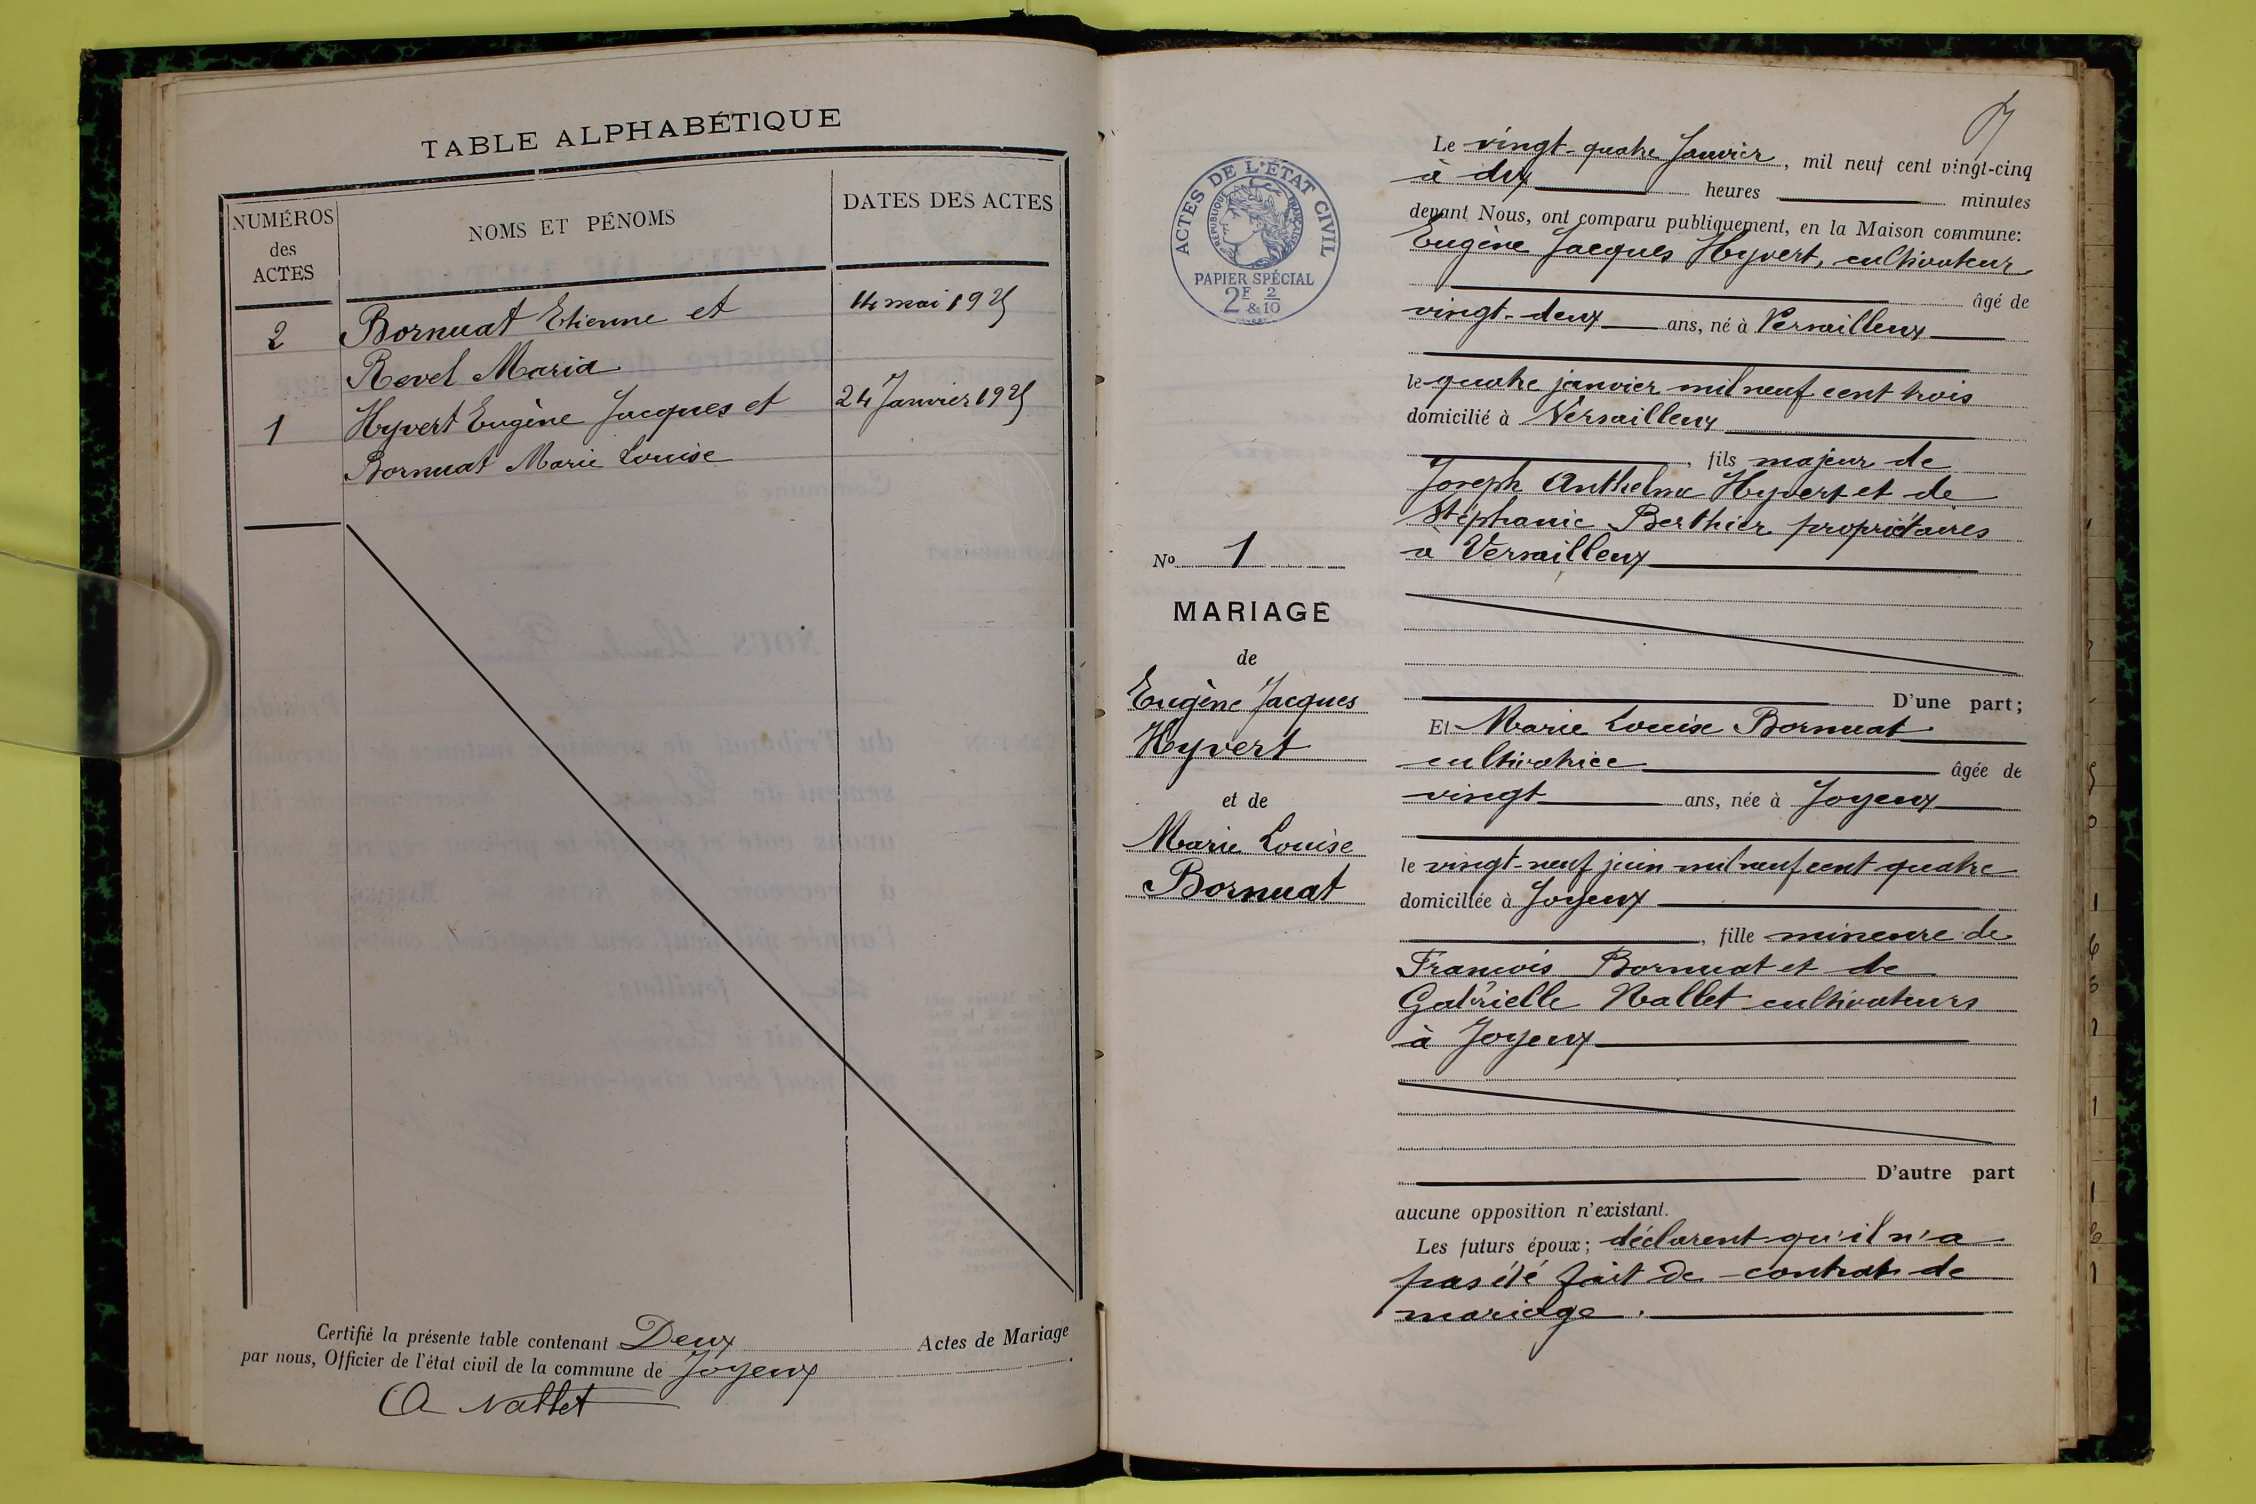 TABLE ALPHABÉTIQUE
NUMÉROS
des
ACTES
NOMS ET PÉNOMS
DATES DES ACTES
2 Bornuat Etienne et 14 mai 1925
Revel Maria
1 Hyvert Eugène Jacques et 24 Janvier 1925
Bornuat Marie Louise
Certifié la présente table contenant Deux Actes de Mariage
par nous, Officier de l'état civil de la commune de Joyeux.
A Nallet
ACTES DE L'ÉTAT CIVIL
RÉPUBLIQUE FRANÇAISE
PAPIER SPÉCIAL
2F & 2/10
No 1
MARIAGE
de
Eugène Jacques
Hyvert
et de
Marie Louise
Bornuat
Le vingt-quatre Janvier, mil neuf cent vingt-cinq
à dix heures minutes
devant Nous, ont comparu publiquement, en la Maison commune:
Eugène Jacques Hyvert, cultivateur
âgé de
vingt-deux ans, né à Versailleux
le quatre janvier mil neuf cent trois
domicilié à Versailleux
, fils majeur de
Joseph Anthelme Hyvert et de
Stéphanie Berthier propriétaires
à Versailleux
D'une part;
Et Marie Louise Bornuat
cultivatrice âgée de
vingt ans, née à Joyeux
le vingt-neuf juin mil neuf cent quatre
domiciliée à Joyeux
, fille mineure de
François Bornuat et de
Gabrielle Nallet cultivateurs
à Joyeux
D'autre part
aucune opposition n'existant.
Les futurs époux; déclarent qu'il n'a
pas été fait de contrat de
mariage.